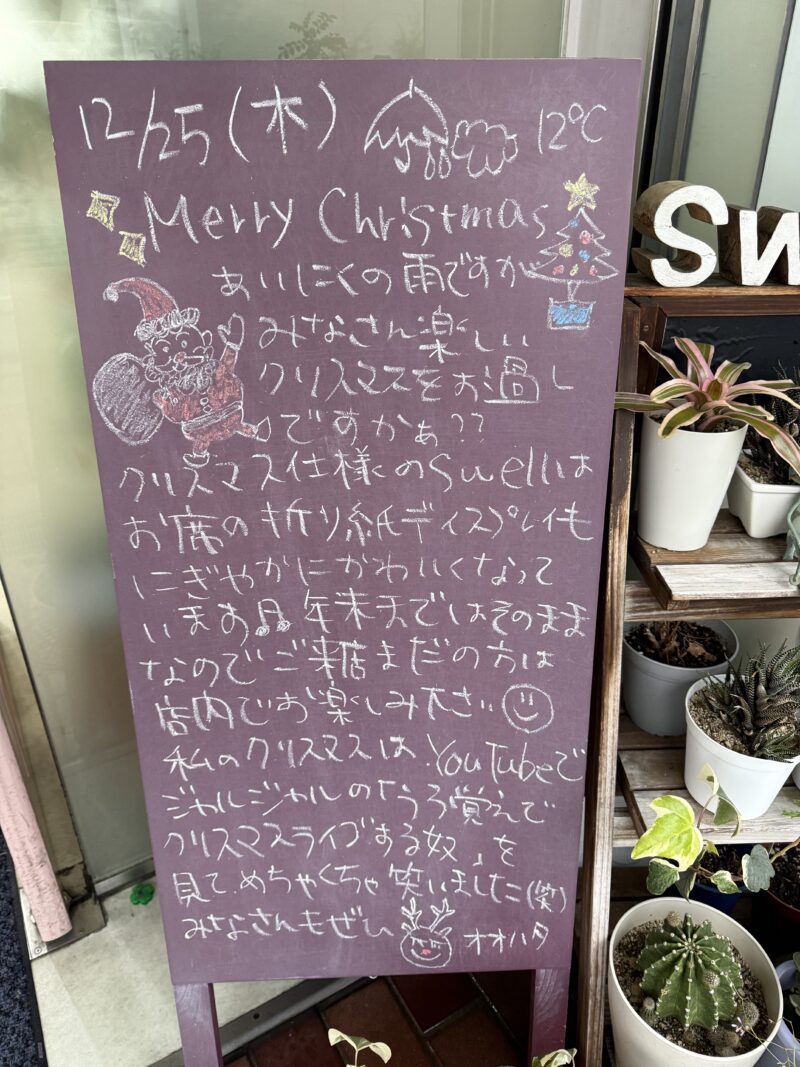 12/25(木) 12℃
Merry Christmas
あいにくの雨ですが
みなさん楽しい
クリスマスをお過し
ですかぁ??
クリスマス仕様のSwellは
お席の折り紙ディスプレイも
にぎやかにかわいくなって
います♫年末まではそのまま
なのでご来店まだの方は
店内でお楽しみ下さい
私のクリスマスはYouTubeで
ジャルジャルの「うろ覚えで
クリスマスライブする奴」を
見て、めちゃくちゃ笑いました(笑)
みなさんもぜひ オオハタ
Sw